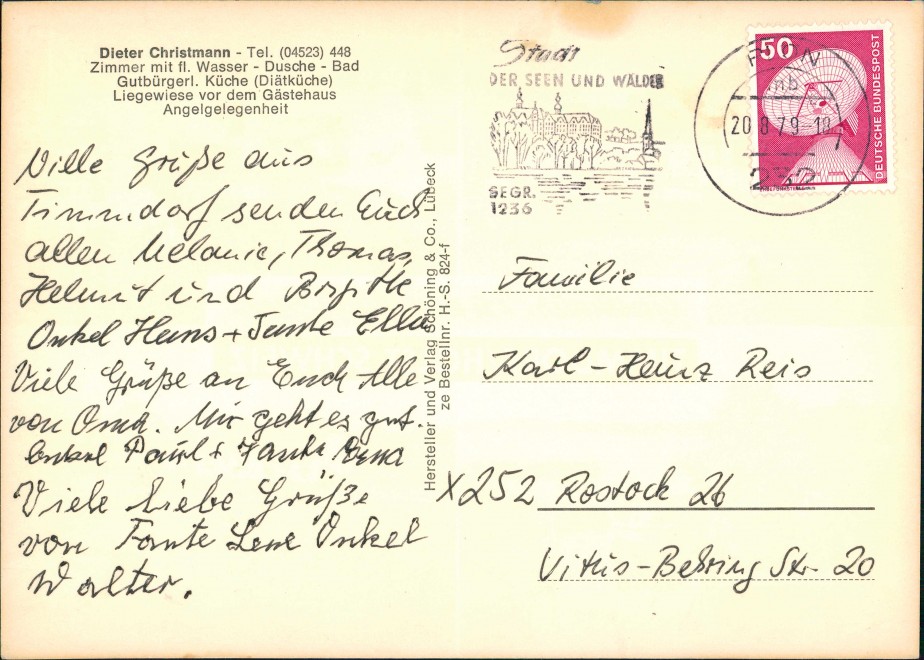 Dieter Christmann - Tel. (04523) 448
Zimmer mit fl. Wasser - Dusche - Bad
Gutbürgerl. Küche (Diätküche)
Liegewiese vor dem Gästehaus
Angelgelegenheit
Viele Grüße aus
Timmdorf senden Euch
allen Melanie, Thomas,
Helmut und Birgitt
Onkel Hans + Tante Ella
Viele Grüße an Euch Alle
von Oma. Mir geht es gut.
Onkel Paul + Tante Erna
Viele liebe Grüße
von Tante Lene Onkel
Walter.
Hersteller und Verlag Schöning & Co., Lübeck
ze Bestellnr. H.-S. 824-f
Stadt
DER SEEN UND WÄLDER
GEGR.
1236
20.8.79-18
232
50
DEUTSCHE BUNDESPOST
Familie
Karl-Heinz Reis
X252 Rostock 26
Vitus-Behring Str. 20